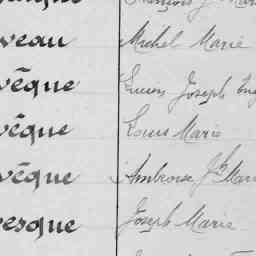 veau Michel Marie
vêque Lucien Joseph
vêque Louis Marie
vêque Ambroise Jh Marie
vesque Joseph Marie